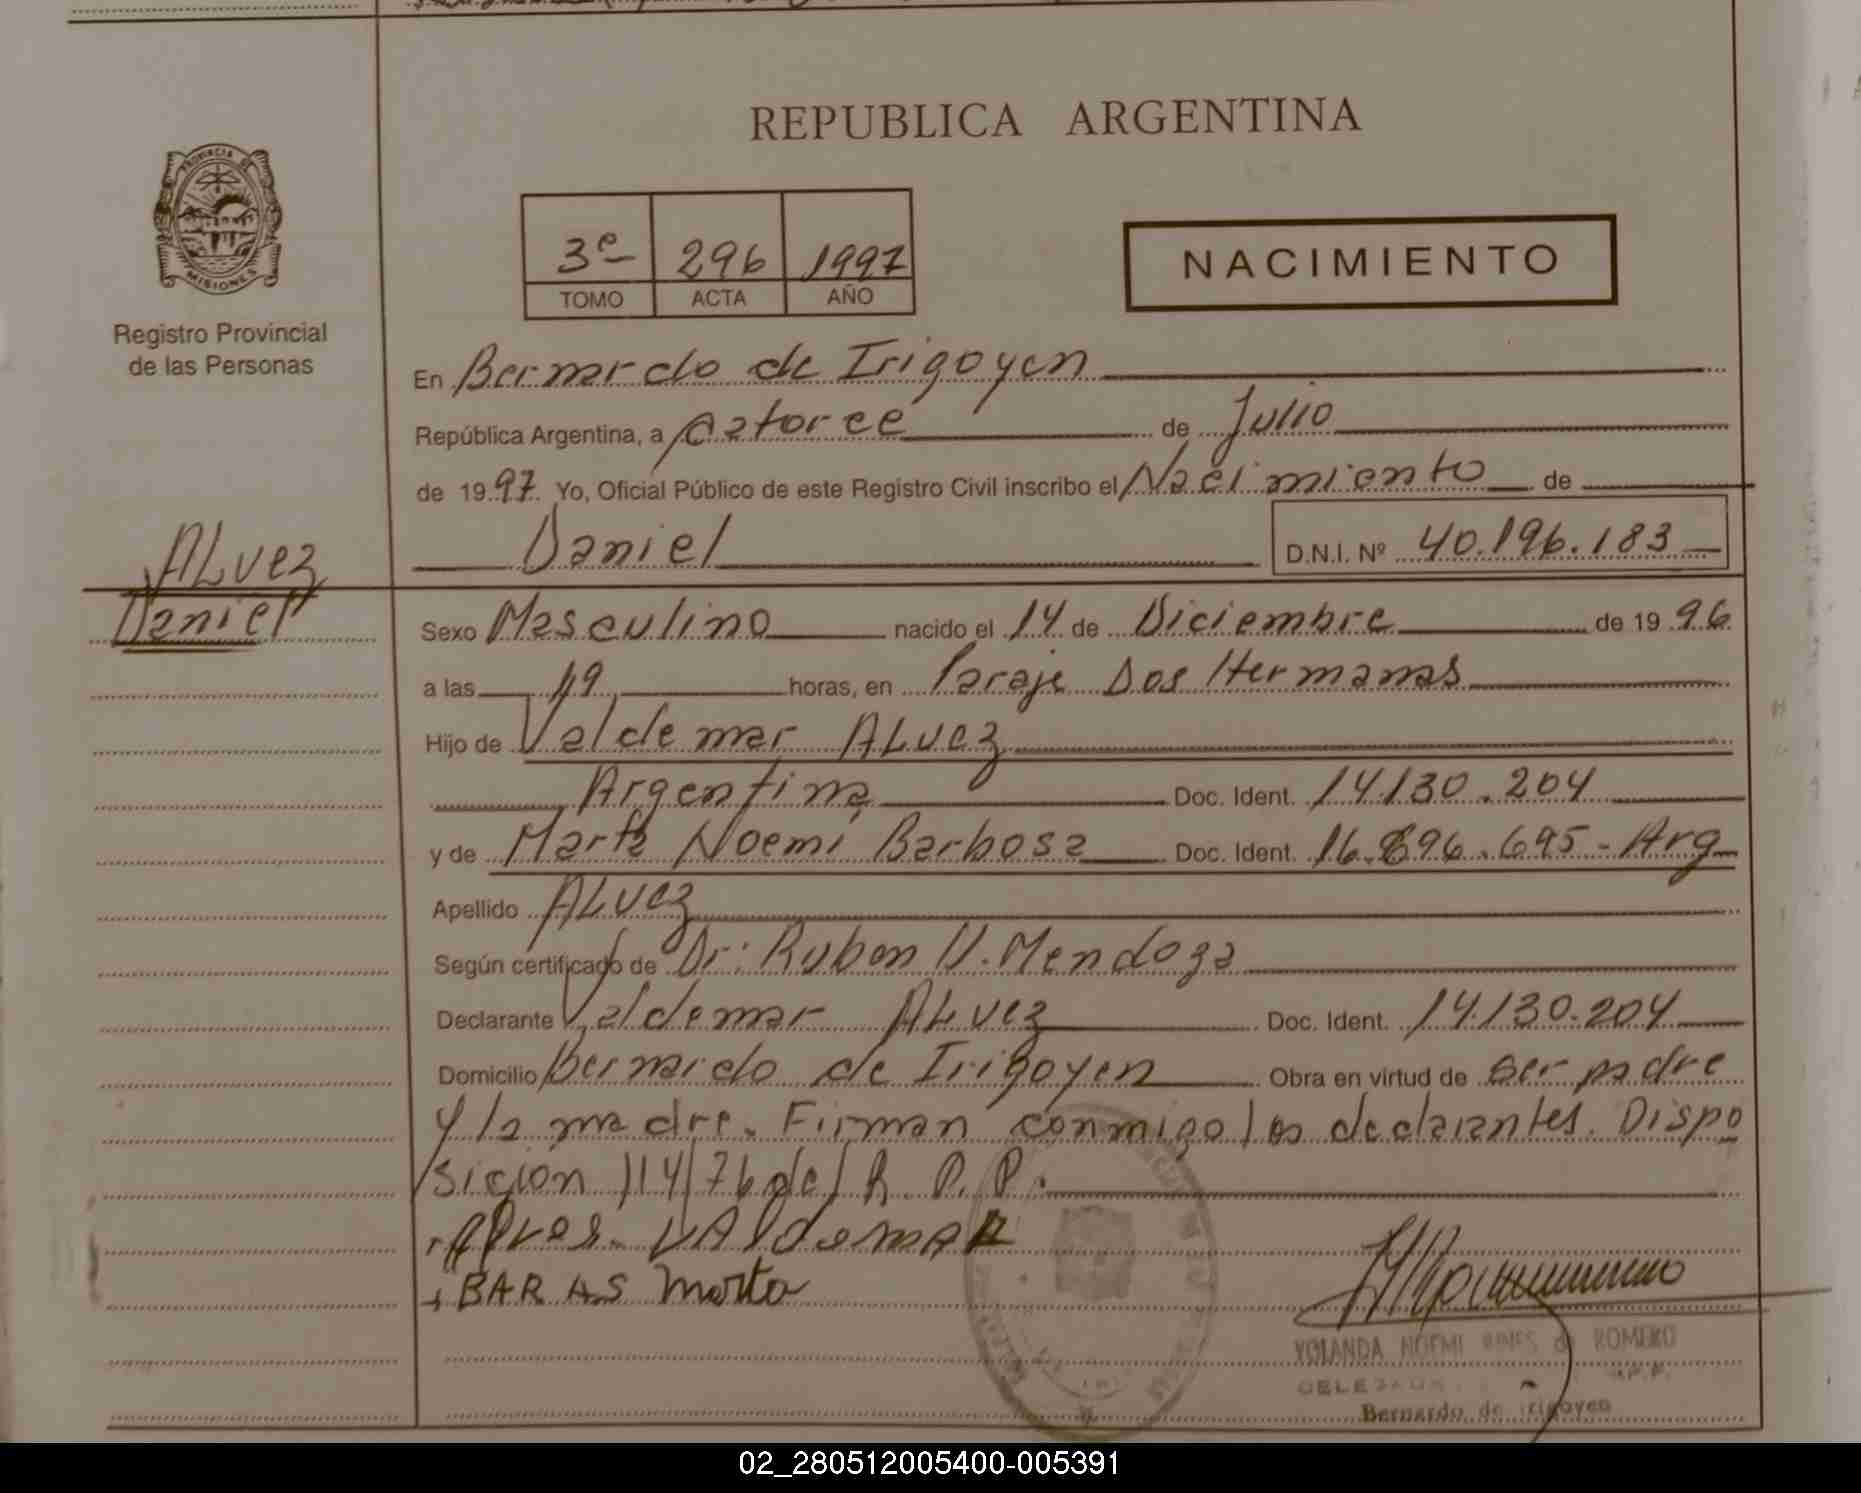 REPUBLICA ARGENTINA
PROVINCIA DE
MISIONES
Registro Provincial
de las Personas
3e 296 1997
TOMO ACTA AÑO
NACIMIENTO
En Bernardo de Irigoyen
República Argentina, a catorce de Julio
de 1997 Yo, Oficial Público de este Registro Civil inscribo el Nacimiento de
Daniel D.N.I. Nº 40.196.183
ALvez
Daniel
Sexo Masculino nacido el 14 de Diciembre de 1996
a las 19 horas, en Paraje Dos Hermanas
Hijo de Valdemar ALvez
Argentina Doc. Ident. 14.130.204
y de Marta Noemi Barbosa Doc. Ident. 16.896.695 - Arg
Apellido ALvez
Según certificado de Dr: Ruben V. Mendoza
Declarante Valdemar ALvez Doc. Ident. 14.130.204
Domicilio Bernardo de Irigoyen Obra en virtud de ser padre
y la madre. Firman conmigo los declarantes. Dispo
sicion 114/76 del R. P. P.
VAldemAR
BAR AS Marta
YOLANDA NOEMI de ROMERO
Bernardo de Irigoyen
02_280512005400-005391